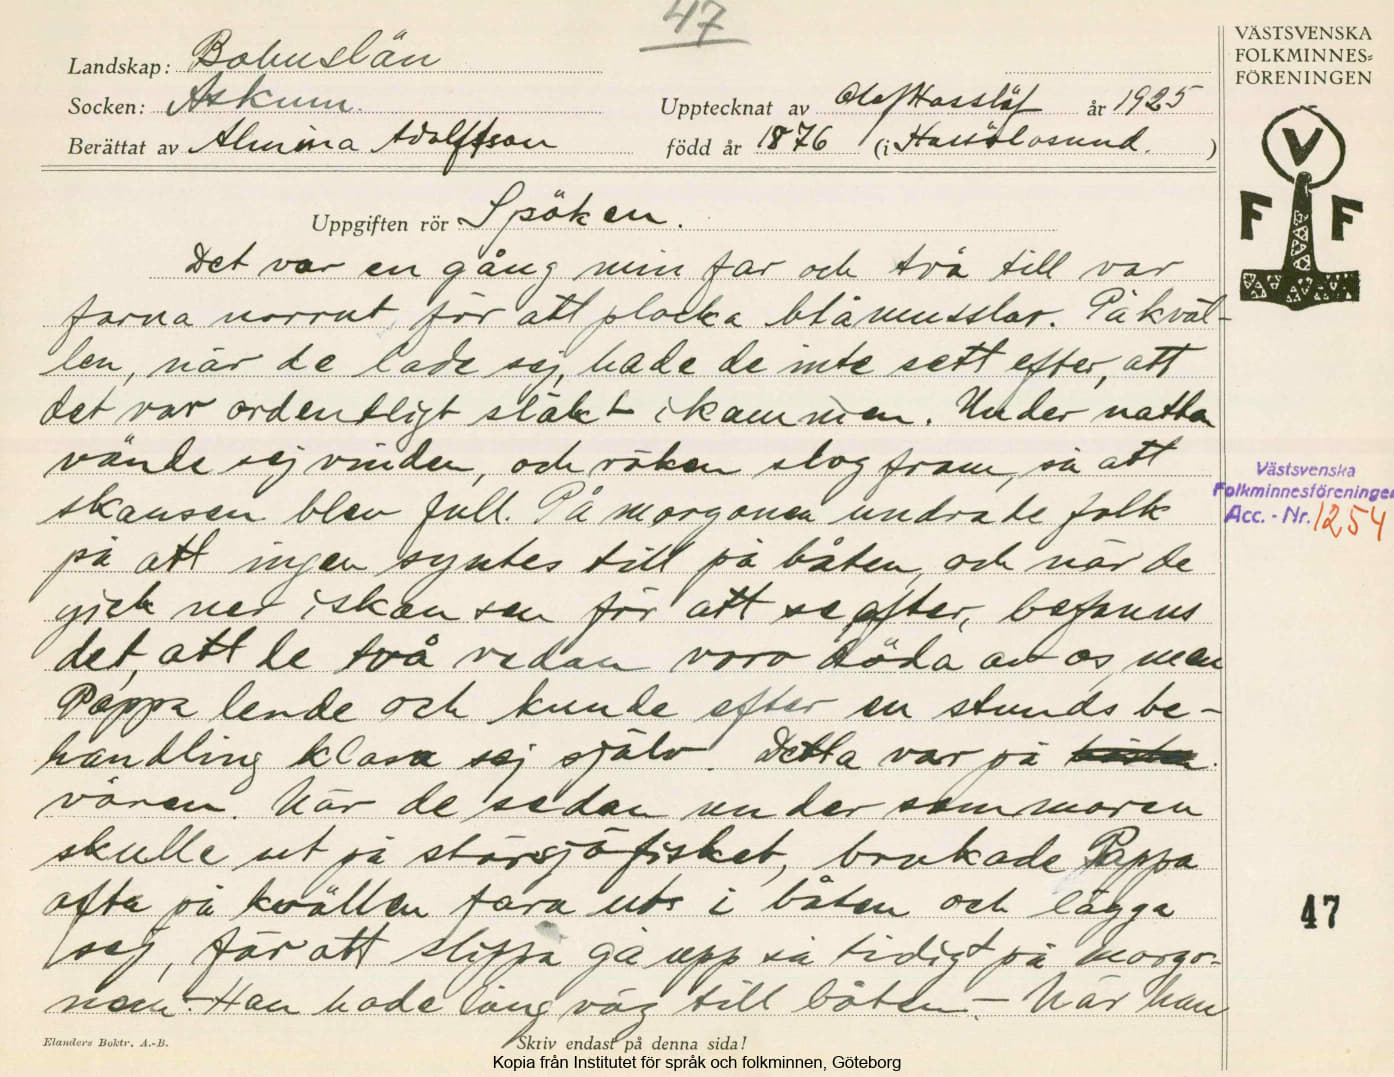 47
VÄSTSVENSKA
FOLKMINNES=
FÖRENINGEN
Landskap: Bohuslän
Socken: Askum.
Upptecknat av Olof Hasslöf år 1925
Berättat av Almina Adolfsson född år 1876 (i Hasselosund.)
V
F F
Uppgiften rör Spöken.
Det var en gång min far och två till var
farna norrut för att plocka blåmusslar. På kväl-
len, när de lade sej, hade de inte sett efter, att
det var ordentligt släkt i kaminen. Under natta
vände sej vinden, och röken slog fram, så att
skansen blev full. På morgonen undrade folk
på att ingen syntes till på båten, och när de
gick ner i skansen för att se efter, befanns
det, att de två redan voro döda av os men
Pappa levde och kunde efter en stunds be-
handling klara sej själv. Detta var på
våren. När de sedan under sommaren
skulle ut på störsjöfisket, brukade Pappa
ofta på kvällen fara ut i båten och lägga
sej, för att slippa gå upp så tidigt på morgo-
nen. - Han hade lång väg till båten. - När han
Västsvenska
Folkminnesföreningen
Acc. - Nr. 1254
47
Elanders Boktr. A.-B.
Skriv endast på denna sida!
Kopia från Institutet för språk och folkminnen, Göteborg